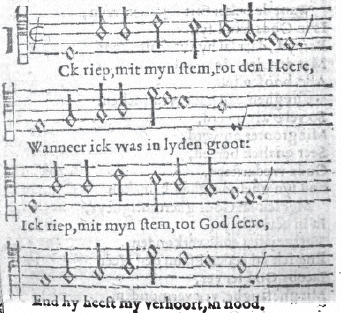 Ck riep, mit myn stem, tot den Heere,
Wanneer ick was in lyden groot:
Ick riep, mit myn stem, tot God seere,
End hy heeft my verhoort, in nood.